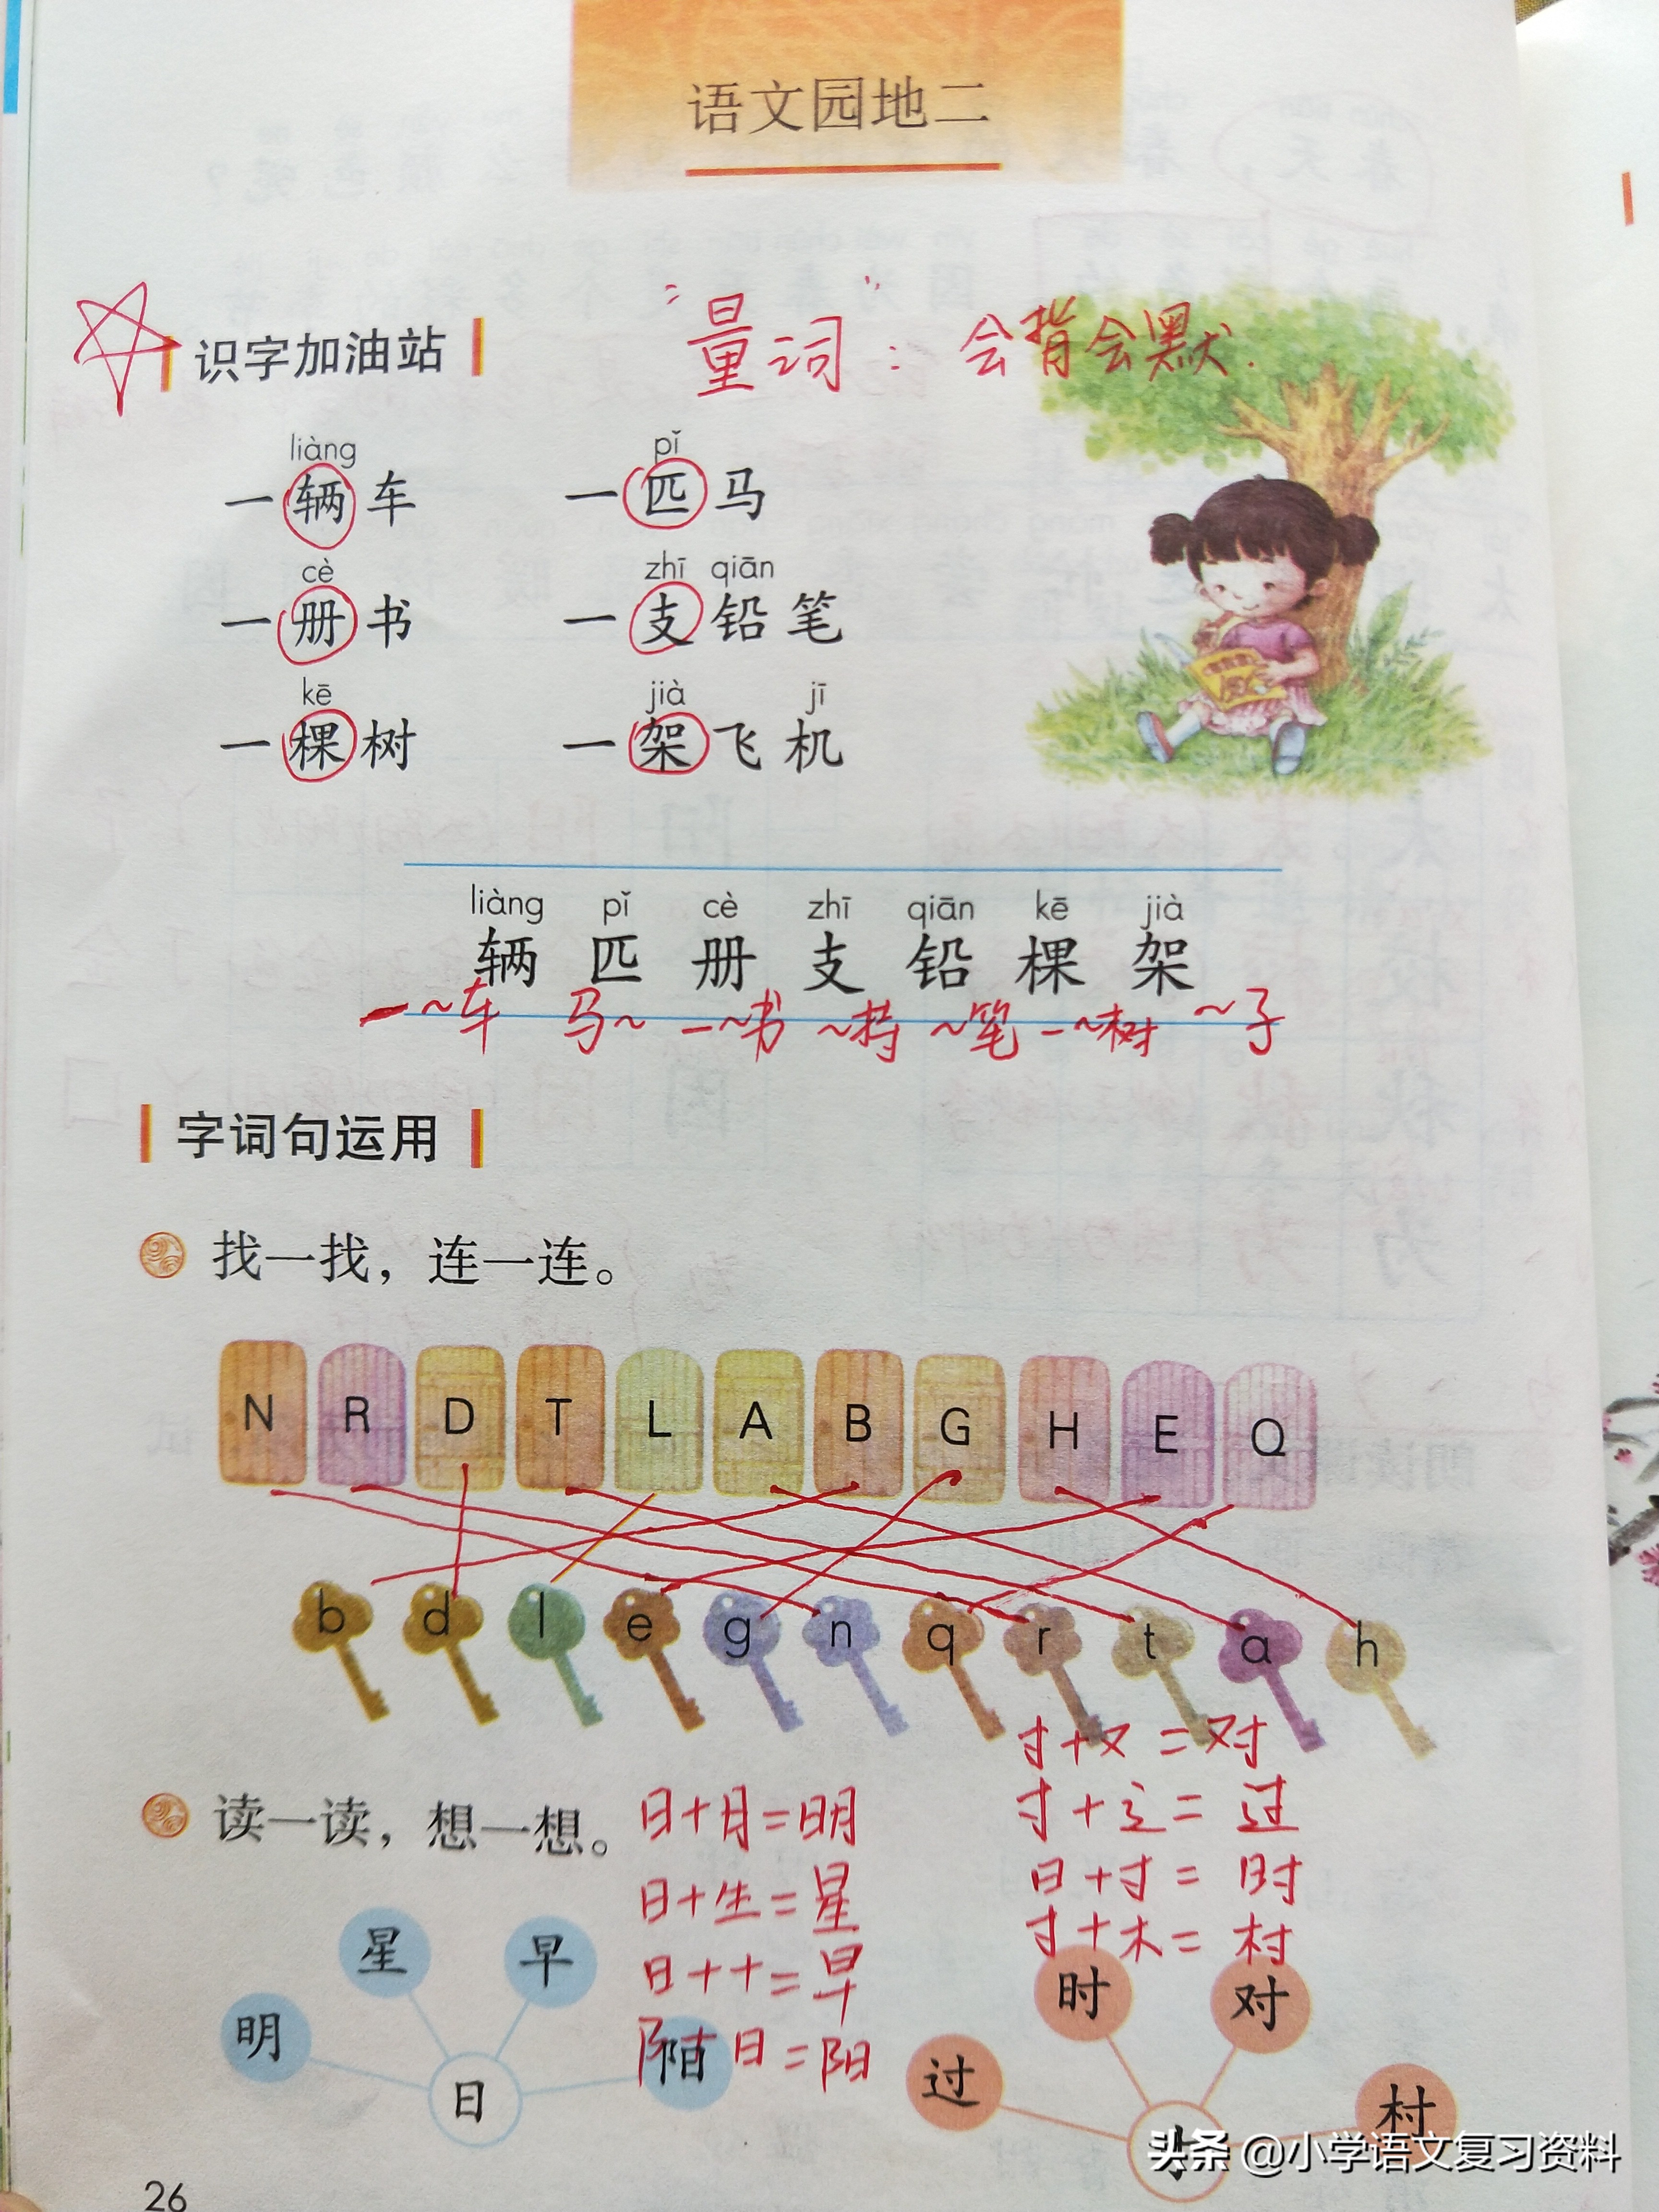 语文园地二
识字加油站
"量词"：会背会默.
liàng pǐ
一辆车 一匹马
cè zhī qiān
一册书 一支铅笔
kē jià jī
一棵树 一架飞机
liàng pǐ cè zhī qiān kē jià
辆 匹 册 支 铅 棵 架
一~车 马~ 一~书 ~持 ~笔 一~树 ~子
字词句运用
找一找，连一连。
N R D T L A B G H E Q
b d l e g n q r t a h
读一读，想一想。
日+月=明
日+生=星
日+十=早
阝+日=阳
寸+又=对
寸+辶=过
日+寸=时
寸+木=村
明 星 早 阳
日
过 时 对 村
寸
头条 @小学语文复习资料
26